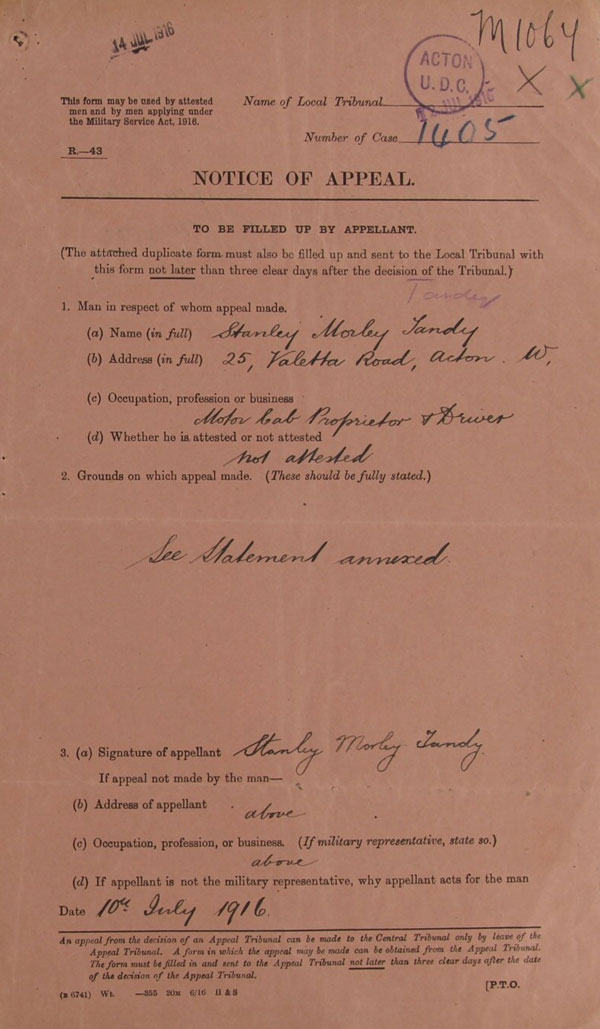 14 JUL 1916
M1064
ACTON
U.D.C.
JUL 1916
X X
This form may be used by attested
men and by men applying under
the Military Service Act, 1916.
Name of Local Tribunal
Number of Case 1405
R.—43
NOTICE OF APPEAL.
TO BE FILLED UP BY APPELLANT.
(The attached duplicate form must also be filled up and sent to the Local Tribunal with
this form not later than three clear days after the decision of the Tribunal.)
Tandy
1. Man in respect of whom appeal made.
(a) Name (in full) Stanley Morley Tandy
(b) Address (in full) 25, Valetta Road, Acton. W,
(c) Occupation, profession or business
Motor Cab Proprietor & Driver
(d) Whether he is attested or not attested
not attested
2. Grounds on which appeal made. (These should be fully stated.)
See Statement annexed.
3. (a) Signature of appellant Stanley Morley Tandy.
If appeal not made by the man—
(b) Address of appellant above
(c) Occupation, profession, or business. (If military representative, state so.)
above
(d) If appellant is not the military representative, why appellant acts for the man
Date 10th July 1916.
An appeal from the decision of an Appeal Tribunal can be made to the Central Tribunal only by leave of the
Appeal Tribunal. A form in which the appeal may be made can be obtained from the Appeal Tribunal.
The form must be filled in and sent to the Appeal Tribunal not later than three clear days after the date
of the decision of the Appeal Tribunal.
[P.T.O.
(B 6741) Wt. —355 20M 6/16 H & S